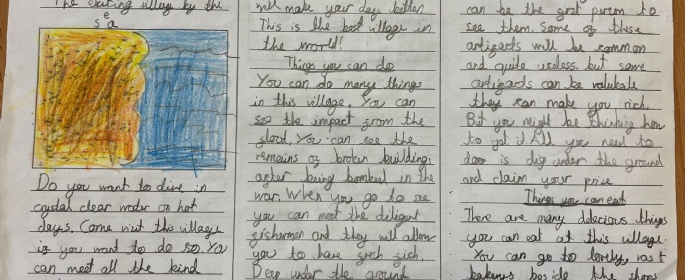 The exciting village by the
sea
Do you want to dive in
crystal clear water on hot
days. Come visit this village
if you want to do so. You
can meet all the kind
will make your day better
This is the best village in
the world!
Things you can do
You can do many things
in this village. You can
see the impact from the
flood. You can see the
remains of broken buildings
after being bombed in the
war. When you go to see
you can meet the diligent
fishermen and they will allow
you to have fresh fish.
Deep under the ground
can be the first person to
see them. Some of these
artifacts will be common
and quite useless, but some
can be
they can make you rich.
But you might be thinking how
to get it. All you need to
doo is dig under the ground
and claim your price
Things you can eat
There are many delecious things
you can eat at this village.
You can go to lovely,
beside the shops